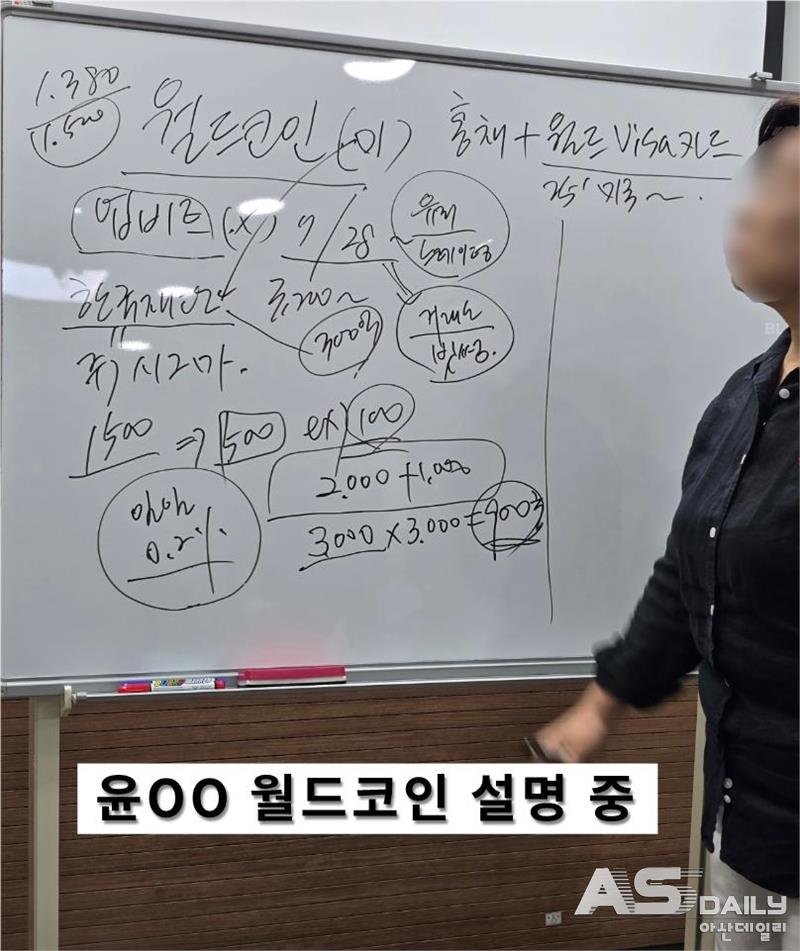 1.380
1.500
월드코인 (미) 홍채 + 월드 Visa카드
25' 미국~.
업비트 (.x) 9/28~
유저
한국재단
300억
거래소
빗썸.
1500 => 500 ex) 100
2.000 + 1.000
3.000 x 3.000 = 900만
0.2%
윤OO 월드코인 설명 중
AS DAILY
아산데일리